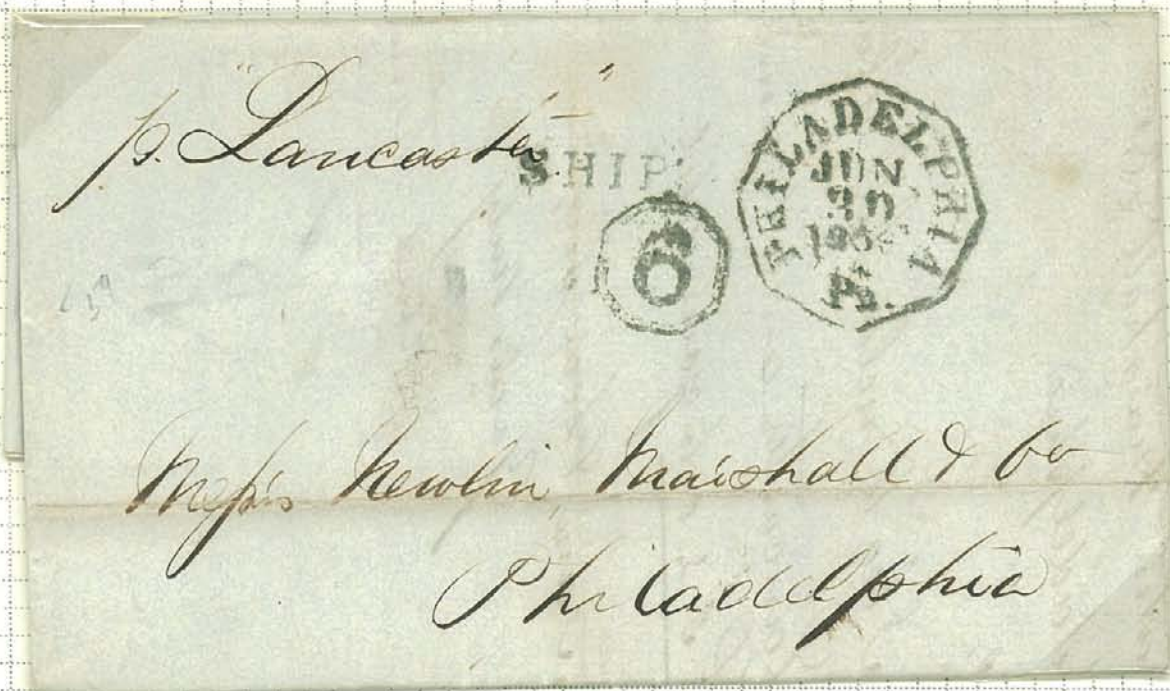 p. "Lancaster"
SHIP
6
PHILADELPHIA
JUN
30
Pa.
Messrs Newlin Marshall & Co
Philadelphia